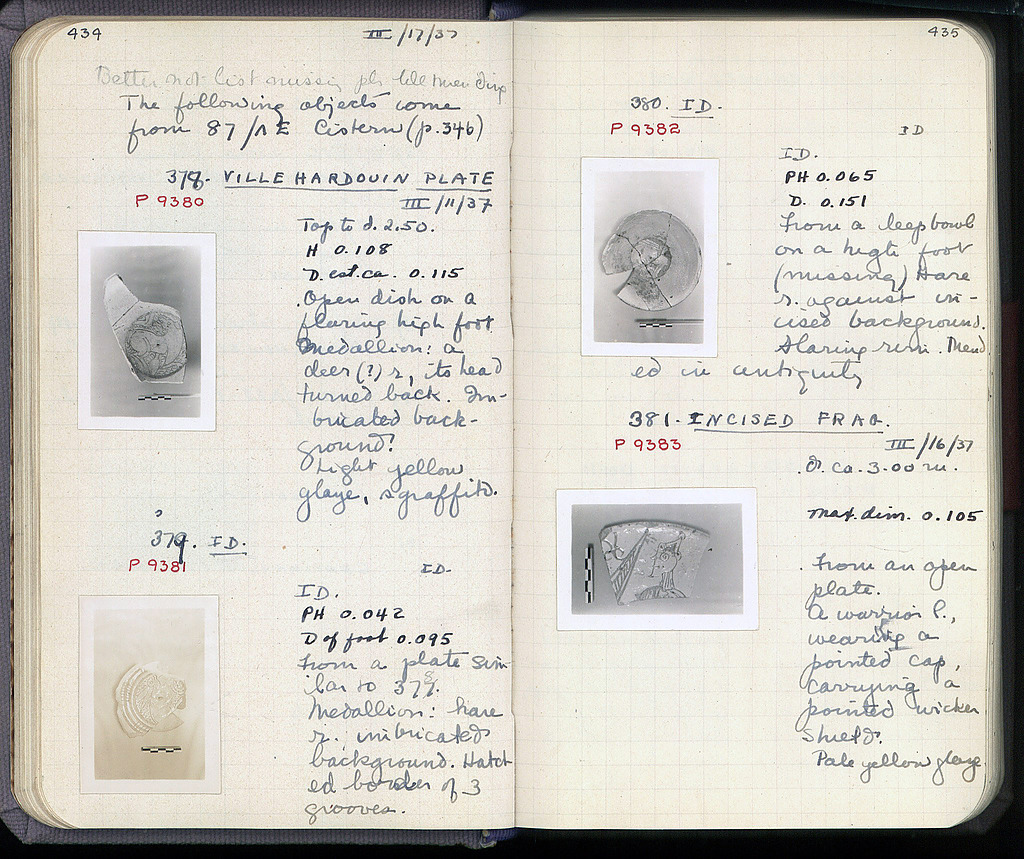 434
III/17/37
Better not list missing pls till mending
The following objects come
from 87/ΛE Cistern (p.346)
378. VILLEHARDOUIN PLATE
P 9380
III/11/37
Top to d. 2.50.
H 0.108
D. est. ca. 0.115
Open dish on a
flaring high foot
Medallion: a
deer (?) r., its head
turned back. Im-
bricated back-
ground.
Light yellow
glaze, sgraffito.
379. ID.
P 9381
ID.
ID.
PH 0.042
D of foot 0.095
From a plate sim
ilar to 378.
Medallion: hare
r. imbricated
background. Hatch
ed border of 3
grooves.
435
380. ID.
P 9382
ID
ID.
PH 0.065
D. 0.151
From a deep bowl
on a high foot
(missing) Hare
r. against in-
cised background.
Flaring rim. Mend
ed in antiquity
381. INCISED FRAG.
P 9383
III/16/37
d. ca. 3.00 m.
Max. dim. 0.105
From an open
plate.
A warrior l.,
wearing a
pointed cap,
carrying a
pointed wicker
shield.
Pale yellow glaze